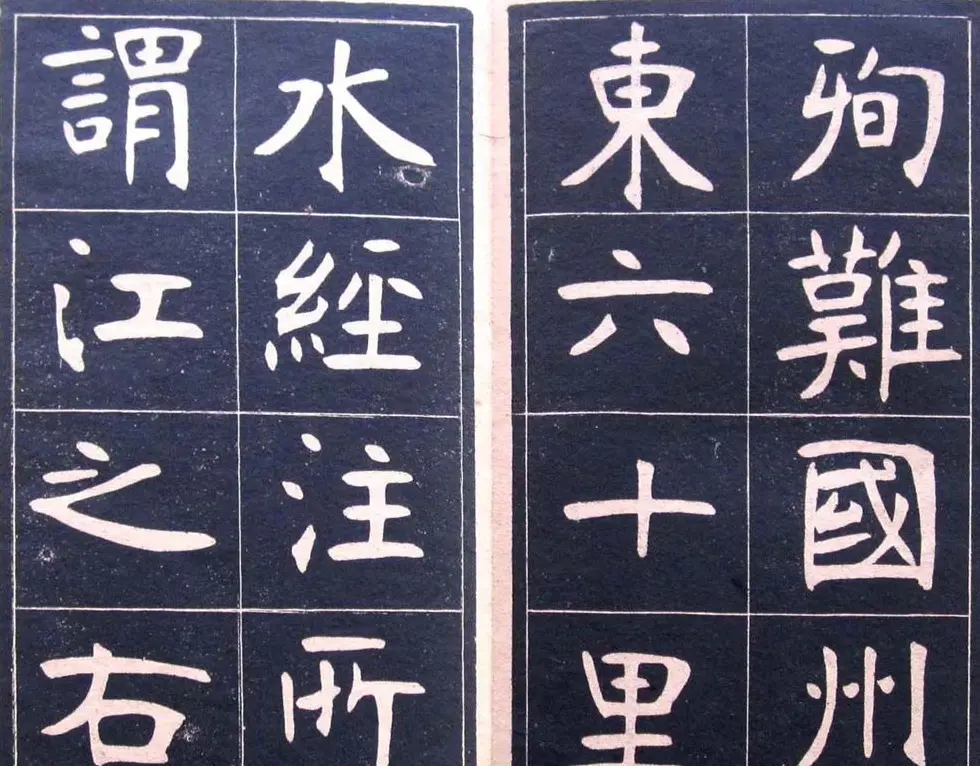 殉難國州
東六十里
水經注所
謂江之右